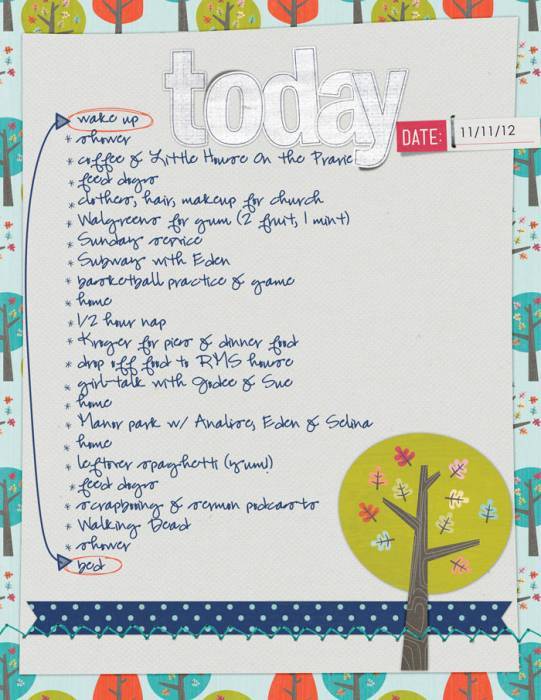 today
DATE: 11/11/12
wake up
* shower
* coffee & Little House on the Prarie
* feed dogs
* clothes, hair, makeup for church
* Walgreens for gum (2 fruit, 1 mint)
* Sunday service
* Subway with Eden
* basketball practice & game
* home
* 1/2 hour nap
* Kroger for pies & dinner food
* drop off food to RMS house
* girl-talk with Jodee & Sue
* home
* Manor park w/ Analise, Eden & Selina
* home
* leftover spaghetti (yum!)
* feed dogs
* scrapbooking & sermon podcasts
* Walking Dead
* shower
bed